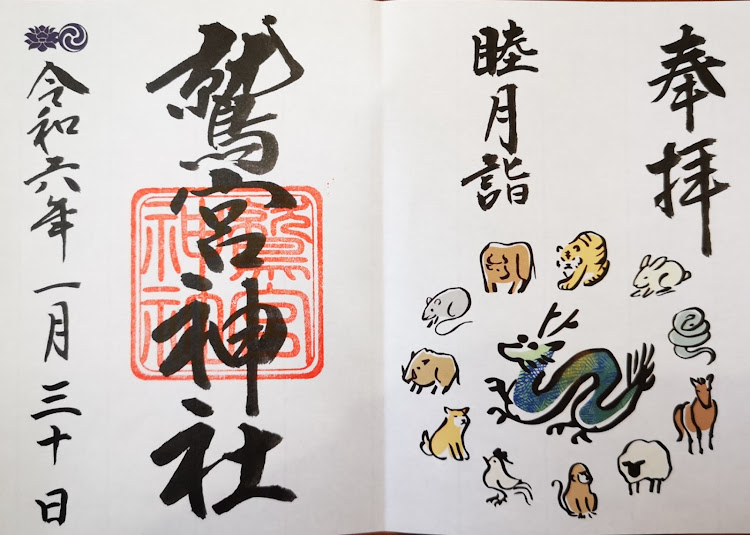 奉拝
睦月詣
鷲宮神社
鷲宮
神社
令和六年一月三十日